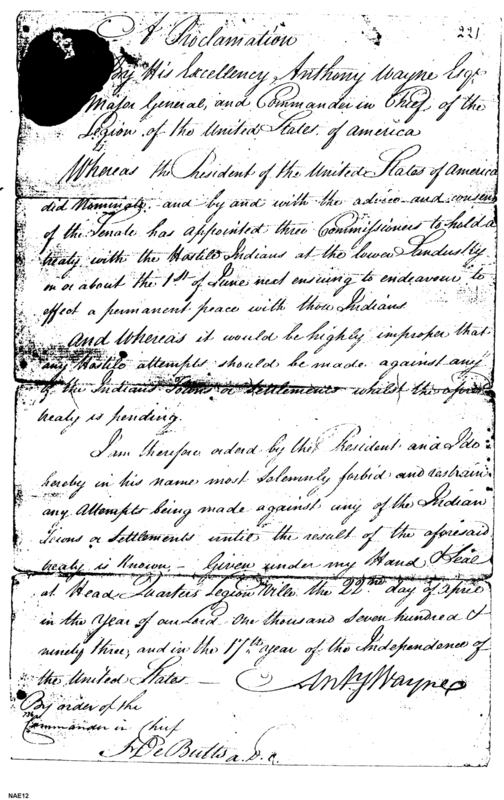 221
A Proclamation
By His Excellency Anthony Wayne Esqr
Major General, and Commander in Chief of the
Legion of the United States of america
Whereas the President of the United States of America
did Nominate and by and with the advice and consent
of the Senate has appointed three Commissioners to hold a
treaty with the Hostile Indians at the lower Sandusky
on or about the 1st of June next ensuing to endeavour to
effect a permanent peace with those Indians
and Whereas it would be highly improper that
any Hostile attempts should be made against any
of the Indians Towns or Settlements whilst the afores
treaty is pending.
I'm therefore orderd by the President and I do
hereby in his name most Solemnly forbid and restrain
any attempts being made against any of the Indian
Towns or Settlements until the result of the aforesaid
treaty is Known. — Given under my Hand & Seal
at Head Quarters Legion Ville the 22nd day of april
in the year of our Lord one thousand seven hundred &
ninety three, and in the 17th year of the Independence of
the United States —
Anty Wayne
By order of the
Commander in Chief
H De Butts a. D. C.
NAE12